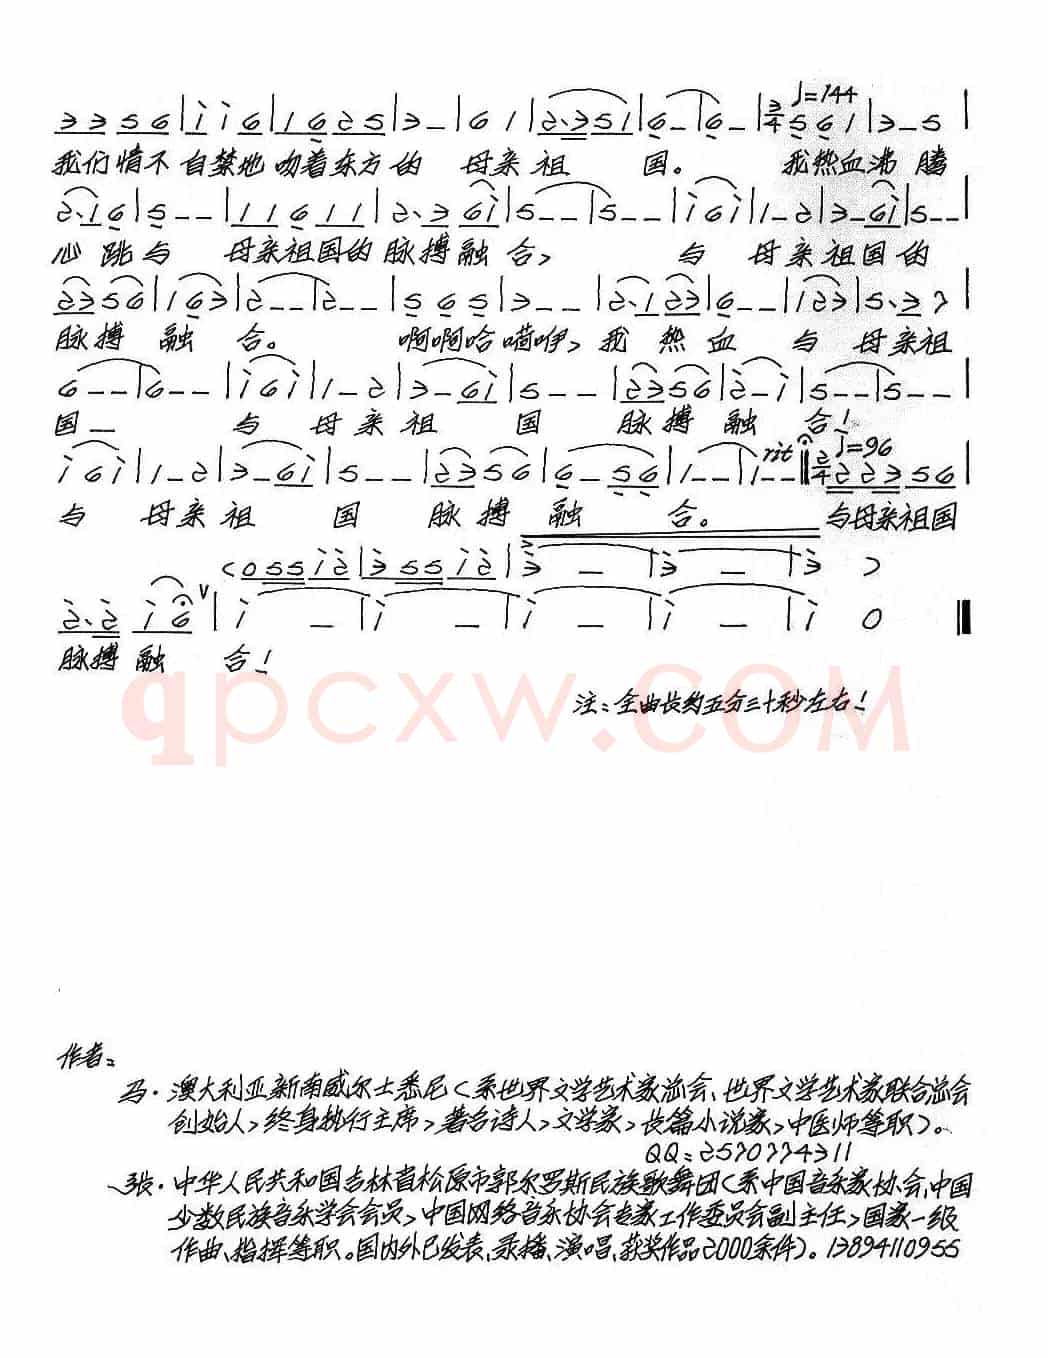 ♩=144
3 3 5 6 | i i 6 | 1 6 2 5 | 3 – | 6 1 | 2·3 5 1 | 6 – | 6 – | 3/4 5 6 1 | 3 – 5 |
我们情不自禁地吻着东方的 母亲祖 国。 我热血沸腾
2·1 6 | 5 – – | 1 1 6 1 1 | 2·3 6 i | 5 – – | 5 – – | i 6 i | 1 – 2 | 3 – 6 i | 5 – – |
心跳与 母亲祖国的脉搏融合, 与 母亲祖国的
2 3 5 6 | 1 6 3 | 2 – – | 2 – – | 5 6 5 | 3 – – | 2·1 2 3 | 6 – – | 1 2 3 | 5·3 7 |
脉搏 融 合。 啊啊哈嗬咿,我 热 血 与 母亲祖
6 – – | 6 – – | i 6 i | 1 – 2 | 3 – 6 i | 5 – – | 2 3 5 6 | 2 – i | 5 – – | 5 – – |
国 – 与 母亲祖 国 脉搏 融 合!
rit ♩=96
i 6 i | 1 – 2 | 3 – 6 i | 5 – – | 2 3 5 6 | 6 – 5 6 | 1 – – | 1 – – ‖ 2/4 2 2 3 5 6 |
与 母亲祖 国 脉搏 融 合。 与母亲祖国
< 0 5 5 i 2 | 3 5 5 i 2 | 3 – | 3 – | 3 >
2·2 i 6 V | i – | i – | i – | i – | i 0 ‖
脉搏 融 合!
注:全曲长约五分三十秒左右!
qpcxw.COM
作者:
冯·澳大利亚新南威尔士悉尼(系世界文学艺术家总会、世界文学艺术家联合总会
创始人,终身执行主席,著名诗人,文学家,长篇小说家,中医师等职)。
QQ:2570774311
张·中华人民共和国吉林省松原市郭尔罗斯民族歌舞团(系中国音乐家协会、中国
少数民族音乐学会会员,中国网络音乐协会专家工作委员会副主任,国家一级
作曲、指挥等职。国内外已发表、录播、演唱、获奖作品2000余件)。13894110955